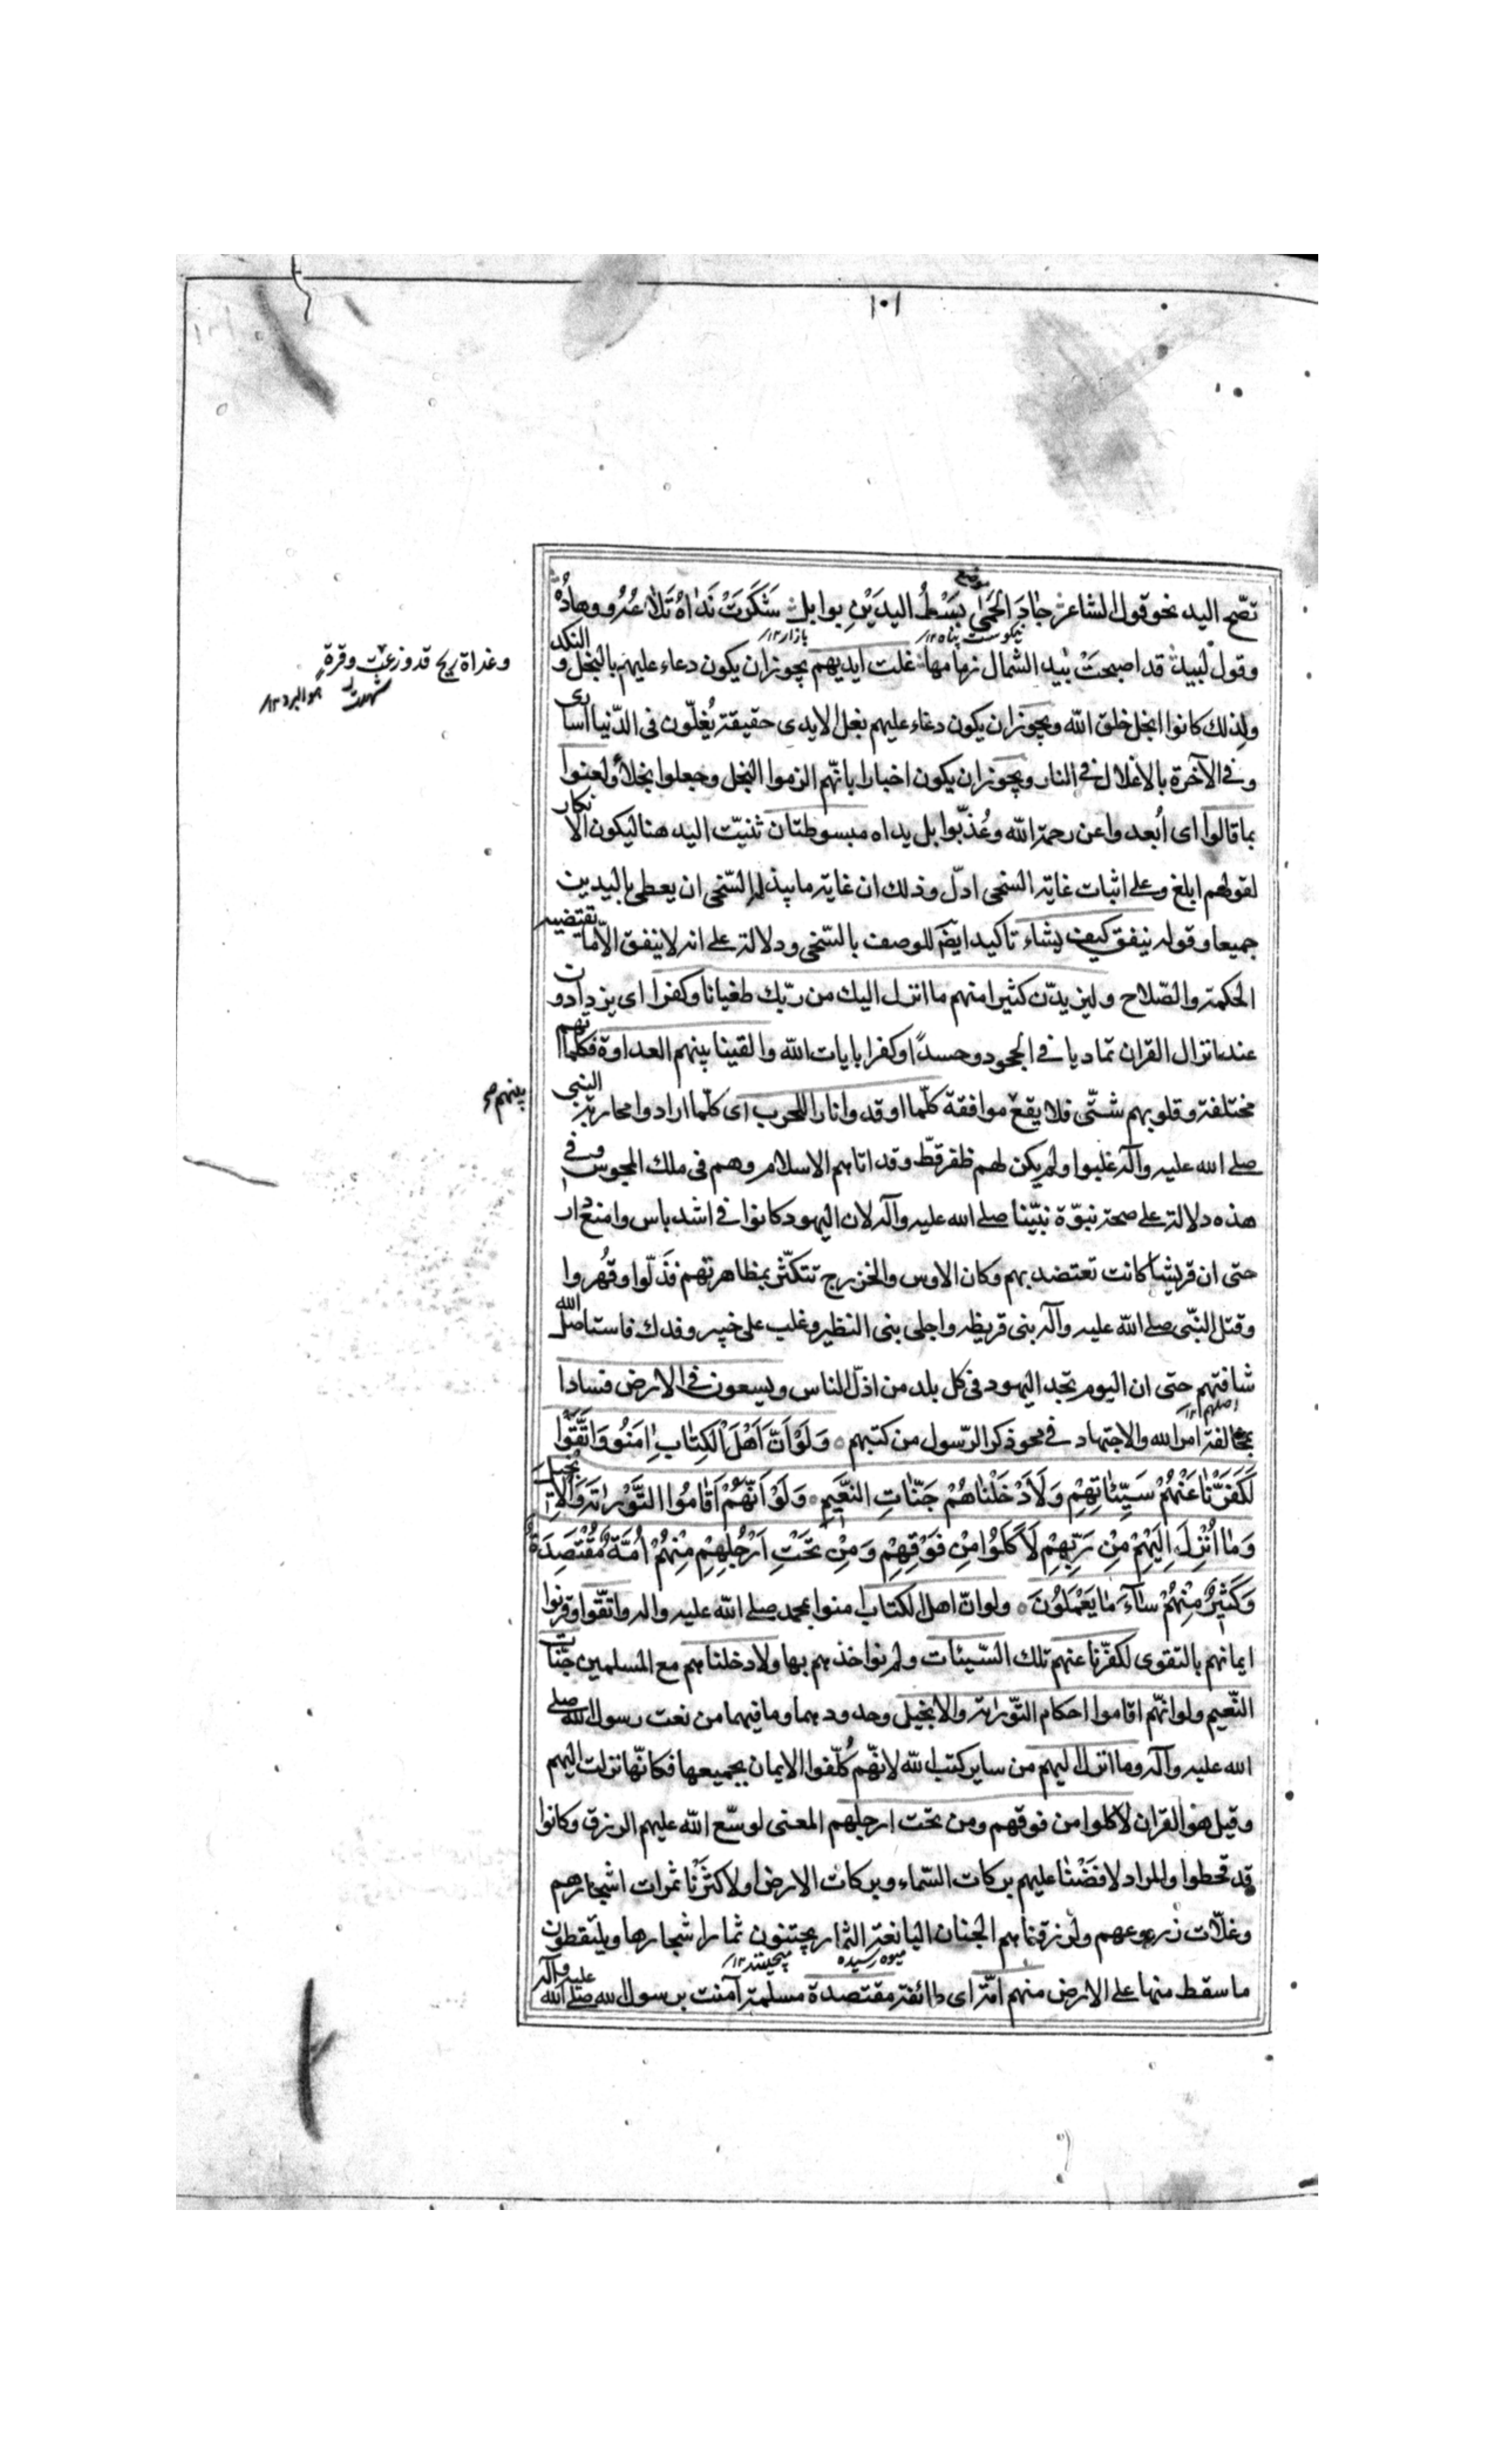 ١٠١
تصّح اليد نحو قول الشاعر جَادَ الحَمٰى بَسْطُ اليدَيْنِ بوابلٍ شَكَرَتْ نَدَاهُ تَلَاعُهُ ووهادُهُ
موضع
وقول لبيد قد اصبحَتْ بيد الشمال زمامها غلت ايديهم يجوز ان يكون دعاء عليهم بالبخل و النكد
وغداة ريح قد وزعت وقرة
ولذلك كانوا ابخل خلق الله ويجوز ان يكون دعاء عليهم بغل الايدى حقيقة يُغلّون فى الدّنيا اسارى
وفى الآخرة بالاغلال فى النار ويجوز ان يكون اخبارا بانّهم الزموا البخل وجعلوا بخلاء ولعنوا
بما قالوا اى اُبعدوا عن رحمة الله وعُذّبوا بل يداه مبسوطتان ثنيّت اليد هنا ليكون الانكار
لقولهم ابلغ وعلى اثبات غاية السخى ادلّ وذلك ان غاية ما يبذله السّخى ان يعطى باليدين
جميعا وقوله ينفق كيف يشاء تاكيد ايضم للوصف بالسّخى ودلالة على انه لا ينفق الّا ما تقتضيه
الحكمة والصّلاح وليزيدّن كثيرا منهم ما انزل اليك من ربّك طغيانا وكفرا اى يزدادون
عند انزال القران تماديا فى الجحود وحسدًا وكفرا بايات الله والقينا بينهم العداوة فكلماتهم
مختلفة وقلوبهم شتّى فلا يقع موافقة كلّما اوقدوا نارا للحرب اى كلّما ارادوا محاربة النبى
بينهم
صلى الله عليه وآله غلبوا ولم يكن لهم ظفر قطّ وقد اتاهم الاسلام وهم فى ملك المجوس وفى
هذه دلالة على صحة نبوّة نبيّنا صلى الله عليه وآله لان اليهود كانوا فى اشد باس وامنع دار
حتى ان قريشا كانت تعتضد بهم وكان الاوس والخزرج تتكثّر بمظاهرتهم فذلّوا وقُهروا
وقتل النبّى صلى الله عليه وآله بنى قريظه واجلى بنى النظير وغلب على خيبر وفدك فاستاصل الله
شافتهم حتى ان اليوم تجد اليهود فى كل بلد من اذلّ الناس ويسعون فى الارض فسادا
بمخالفة امر الله والاجتهاد فى محو ذكر الرّسول من كتبهم ٥ وَلَوْ اَنَّ اَهْلَ الْكِتَابِ اٰمَنُو وَاتَّقَوْا
لَكَفَرّْنَا عَنْهُمْ سَيِّئَاتِهِمْ وَلَاَدْخَلْنَاهُمْ جَنّٰاتِ النَّعٖيمِ ٥ وَلَوْ اَنَّهُمْ اَقَامُوا التَّوْرٰاتَة وَالْاِنْجِيلَ
وَمٰا اُنْزِلَ اِلَيْهِمْ مِنْ رَبِّهِمْ لَاَكَلُوا مِنْ فَوْقِهِمْ وَمِنْ تَحْتِ اَرْجُلِهِمْ مِنْهُمْ اُمَّةٌ مُقْتَصِدَةٌ
وَكَثِيرٌ مِنْهُمْ سٰآءَ مٰا يَعْمَلُونَ ٥ ولو انّ اهل الكتاب امنوا بمحمد صلى الله عليه واله واتقّوا وقرنوا
ايمانهم بالتقوى لكفّرنا عنهم تلك السّيئات ولم نواخذهم بها ولادخلناهم مع المسلمين جنّات
النّعيم ولو انّهم اقاموا احكام التّوراة والانجيل وحدودهما وما فيهما من نعت رسول الله صلى
الله عليه وآله وما انزل اليهم من ساير كتب الله لانّهم كُلّفوا الايمان بجميعها فكانّها نزلت اليهم
وقيل هو القران لاكلوا من فوقهم ومن تحت ارجلهم المعنى لوسّع الله عليهم الرزق وكانوا
قد قحطوا والمراد لافَضْنا عليهم بركات السّماء وبركات الارض او لاكثَرْنا ثمرات اشجارهم
وغلّات زروعهم ولرزقناهم الجنان اليانعة الثمار يجتنون ثمار اشجارها ويلتقطون
ميوه رسيده
ما سقط منها على الارض منهم امّة اى طائفة مقتصدة مسلمة آمنت برسول الله صلى الله عليه وآله